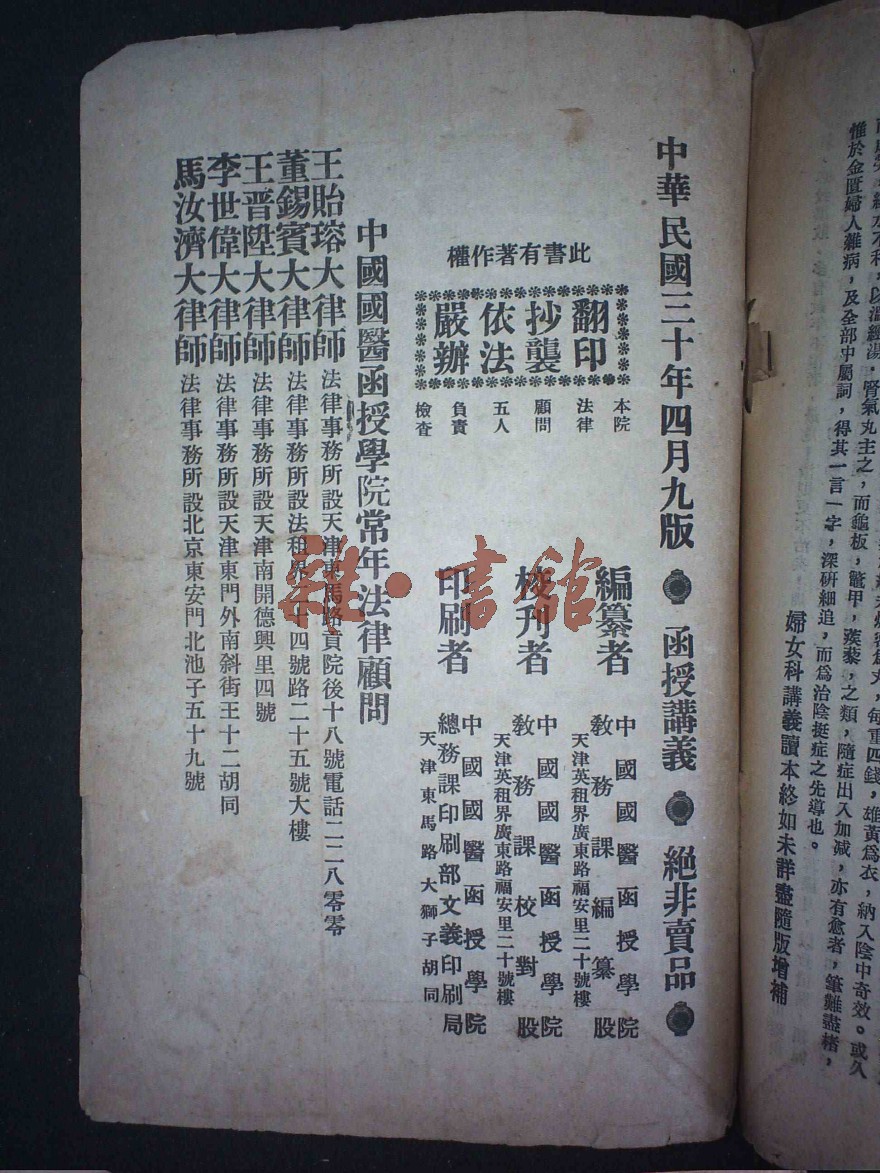 中華民國三十年四月九版 函授講義 絕非賣品
此書有著作權
翻印
抄襲
依法
嚴辦
本院
法律
顧問
五人
負責
檢查
編纂者
中國國醫函授學院
教務課編纂股
天津英租界廣東路福安里二十號樓
校刊者
中國國醫函授學院
教務課校對股
天津英租界廣東路福安里二十號樓
印刷者
中國國醫函授學院
總務課印刷部文義印刷局
天津東馬路大獅子胡同
中國國醫函授學院常年法律顧問
王貽瑢大律師 法律事務所設天津東馬路貢院後十八號電話二二八零零
董錫賓大律師 法律事務所設法租界二十四號路二十五號大樓
王晋陞大律師 法律事務所設天津南開德興里四號
李世偉大律師 法律事務所設天津東門外南斜街王十二胡同
馬汝濟大律師 法律事務所設北京東安門北池子五十九號
雜·書館
丸,每重四錢,雄黃爲衣,納入陰中奇效。或久
腎氣丸主之,而龜板,鼈甲,蒺藜,之類,隨症出入加減,亦有愈者,筆難盡楮,
惟於金匱婦人雜病,及全部中屬詞,得其一言一字,深硏細追,而爲治陰挺症之先導也。
婦女科講義讀本終如未詳盡隨版增補